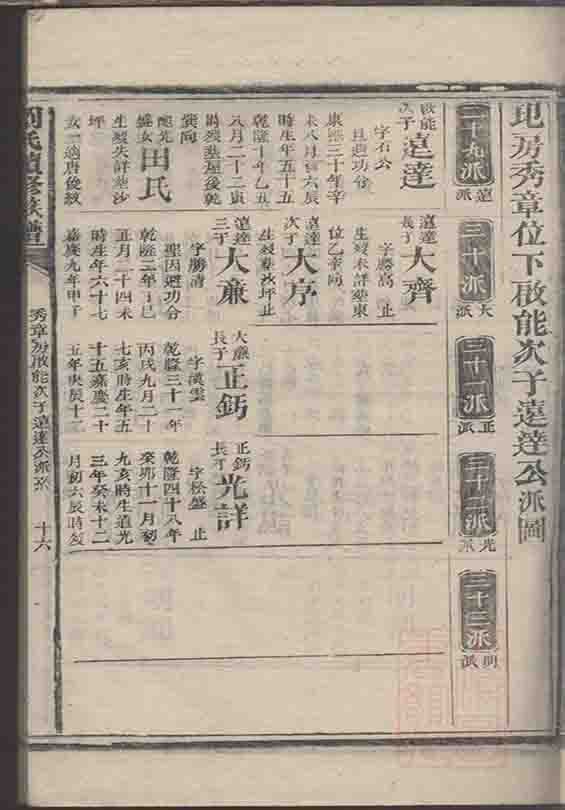 地房秀章位下啟能次子遠達公派圖
二十九派
遠派
三十派
大派
三十一派
正派
三十二派
光派
三十三派
明派
啟能
次子
遠達
字石公
且廻功分
康熙三十年辛
未八月初六辰
時生年五十五
乾隆十年乙丑
八月二十二寅
時歿葬屋後乾
巽向
配冼
盛女
田氏
生歿失詳葬沙
坪
女一適唐俊紋
遠達
長子
大齊
字勝高 止
生歿未詳葬東
位乙辛向
遠達
次子
大序
生歿葬沙坪止
遠達
三子
大亷
字勝清
聖因廻功分
乾隆二年丁巳
正月二十四未
時生年六十七
嘉慶九年甲子
大亷
長子
正鈣
字漢雲
乾隆三十一年
丙戌九月二十
七亥時生年五
十五嘉慶二十
五年庚辰十二
正鈣
長子
光詳
字松盛 止
乾隆四十八年
癸卯十一月初
九亥時生道光
三年癸未十二
月初六辰時歿
劉氏續修族譜
秀章房啟能次子遠達公派系
十六